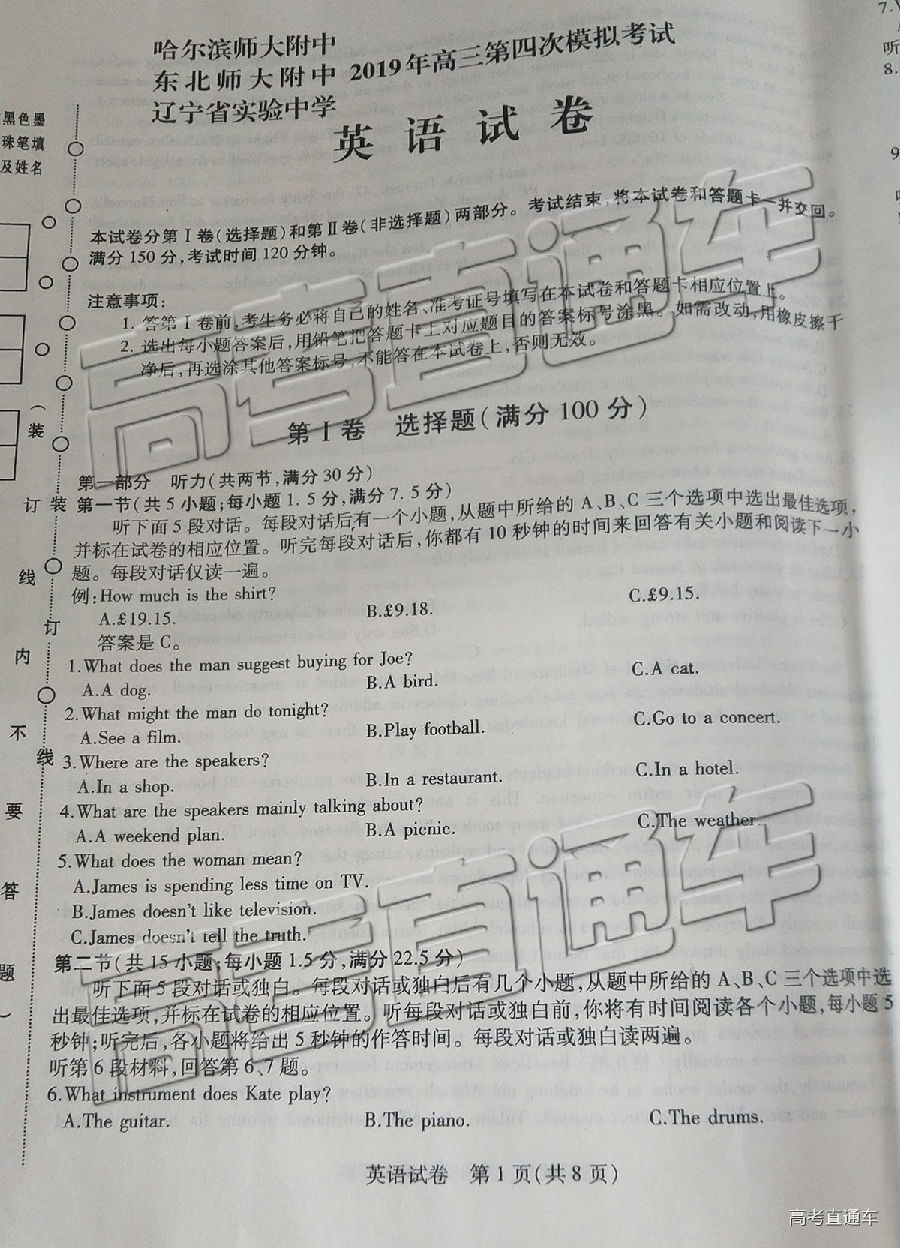 哈尔滨师大附中
东北师大附中 2019年高三第四次模拟考试
辽宁省实验中学
英语试卷
本试卷分第Ⅰ卷(选择题)和第Ⅱ卷(非选择题)两部分。考试结束,将本试卷和答题卡一并交回。
满分150分,考试时间120分钟。
注意事项:
1. 答第Ⅰ卷前,考生务必将自己的姓名、准考证号填写在本试卷和答题卡相应位置上。
2. 选出每小题答案后,用铅笔把答题卡上对应题目的答案标号涂黑。如需改动,用橡皮擦干
净后,再选涂其他答案标号,不能答在本试卷上,否则无效。
第Ⅰ卷 选择题(满分100分)
第一部分 听力(共两节,满分30分)
第一节(共5小题;每小题1.5分,满分7.5分)
听下面5段对话。每段对话后有一个小题,从题中所给的A、B、C三个选项中选出最佳选项,
并标在试卷的相应位置。听完每段对话后,你都有10秒钟的时间来回答有关小题和阅读下一小
题。每段对话仅读一遍。
例:How much is the shirt?
A.£19.15. B.£9.18. C.£9.15.
答案是C。
1.What does the man suggest buying for Joe?
A.A dog. B.A bird. C.A cat.
2.What might the man do tonight?
A.See a film. B.Play football. C.Go to a concert.
3.Where are the speakers?
A.In a shop. B.In a restaurant. C.In a hotel.
4.What are the speakers mainly talking about?
A.A weekend plan. B.A picnic. C.The weather.
5.What does the woman mean?
A.James is spending less time on TV.
B.James doesn't like television.
C.James doesn't tell the truth.
第二节(共15小题;每小题1.5分,满分22.5分)
听下面5段对话或独白。每段对话或独白后有几个小题,从题中所给的A、B、C三个选项中选
出最佳选项,并标在试卷的相应位置。听每段对话或独白前,你将有时间阅读各个小题,每小题5
秒钟;听完后,各小题将给出5秒钟的作答时间。每段对话或独白读两遍。
听第6段材料,回答第6、7题。
6.What instrument does Kate play?
A.The guitar. B.The piano. C.The drums.
英语试卷 第1页(共8页)
黑色墨
珠笔填
及姓名
(装
订
线
内
不
要
答
题
)
装
订
线
7.
听
8.
9
高考直通车
高考直通车
高考直通车